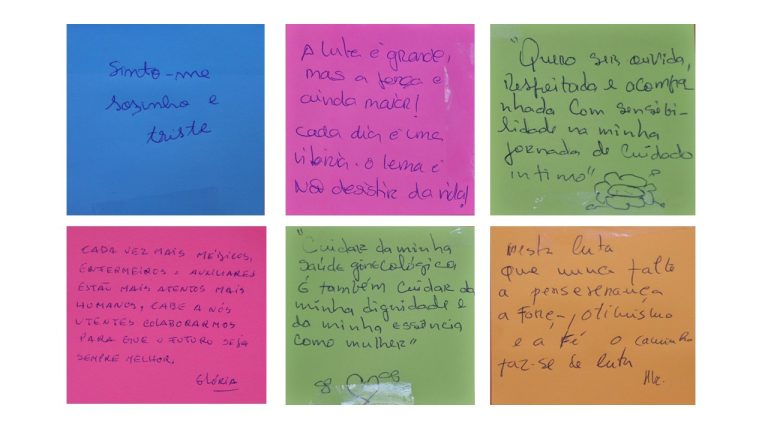 Sinto-me
sozinho e
triste
A luta é grande,
mas a força é
ainda maior!
Cada dia é uma
vitória. O lema é
Não desistir da vida!
"Quero ser ouvida,
Respeitada e acompa
nhada com sensibi-
lidade na minha
jornada de cuidado
íntimo"
CADA VEZ MAIS MÉDICOS,
ENFERMEIROS E AUXILIARES
ESTÃO MAIS ATENTOS MAIS
HUMANOS, CABE A NÓS
UTENTES COLABORARMOS
PARA QUE O FUTURO SEJA
SEMPRE MELHOR.
GLÓRIA
"Cuidar da minha
saúde ginecológica
É também cuidar da
minha dignidade e
da minha essência
como mulher"
Nesta luta
que nunca falte
a perseverança
a Força, otimismo
e a Fé o caminho
faz-se de luta